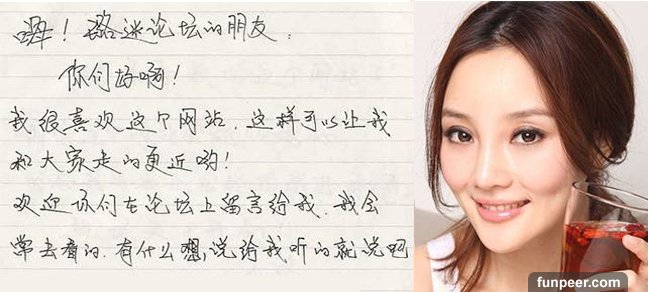 嗨！璐迷论坛的朋友：
你们好啊！
我很喜欢这个网站，这样可以让我
和大家走的更近哟！
欢迎你们在论坛上留言给我，我会
常去看的，有什么想说给我听的就说吧
funpeer.com